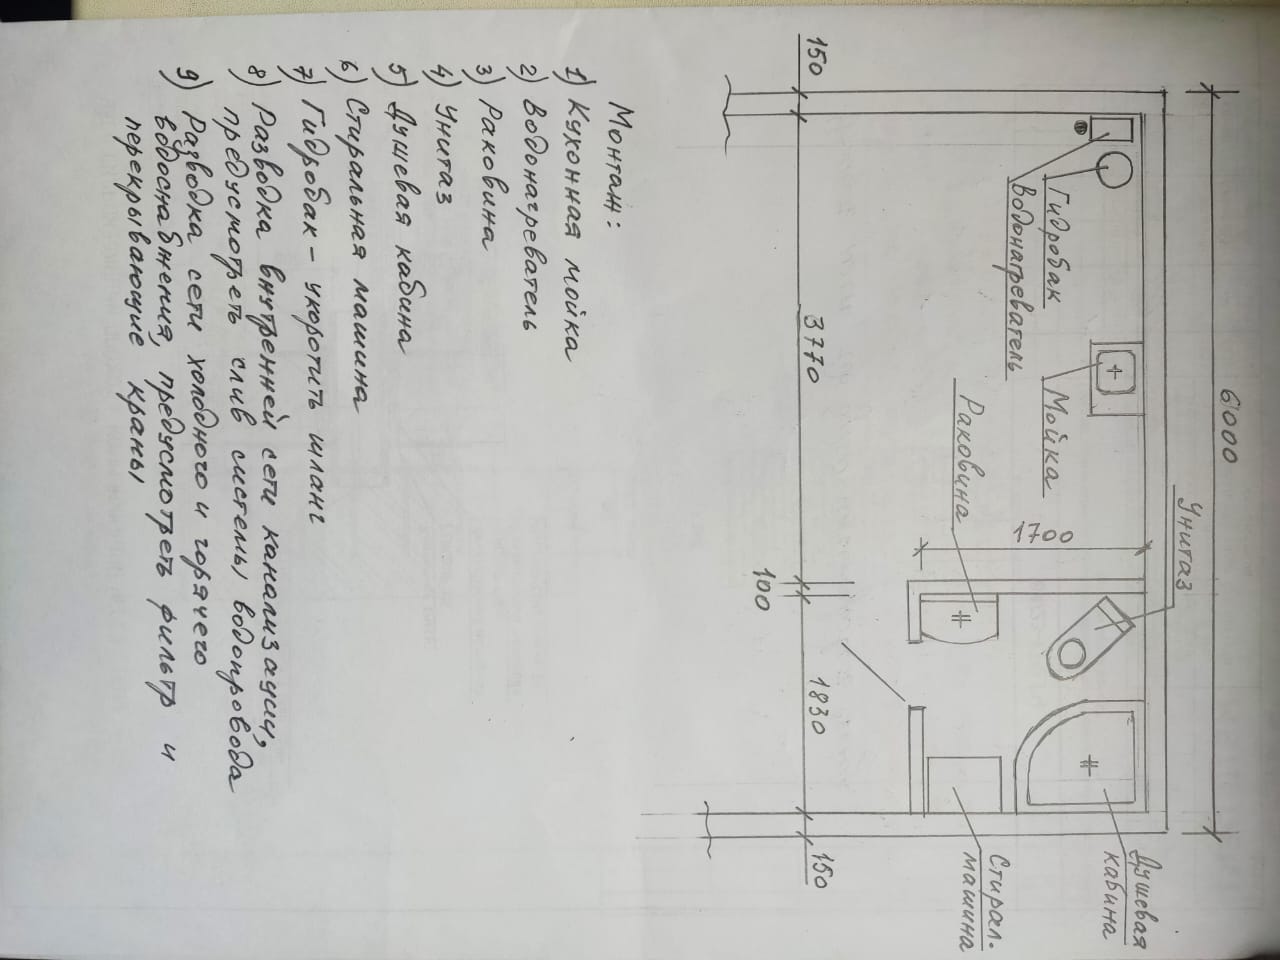 6000
Унитаз
Душевая
кабина
Гидробак
Водонагреватель
Мойка
1700
Раковина
Стирал.
машина
150
3770
100
1830
150
Монтаж:
1) Кухонная мойка
2) Водонагреватель
3) Раковина
4) Унитаз
5) Душевая кабина
6) Стиральная машина
7) Гидробак - укоротить шланг
8) Разводка внутренней сети канализации,
предусмотреть слив системы водопровода
9) Разводка сети холодного и горячего
водоснабжения, предусмотреть фильтр и
перекрывающие краны